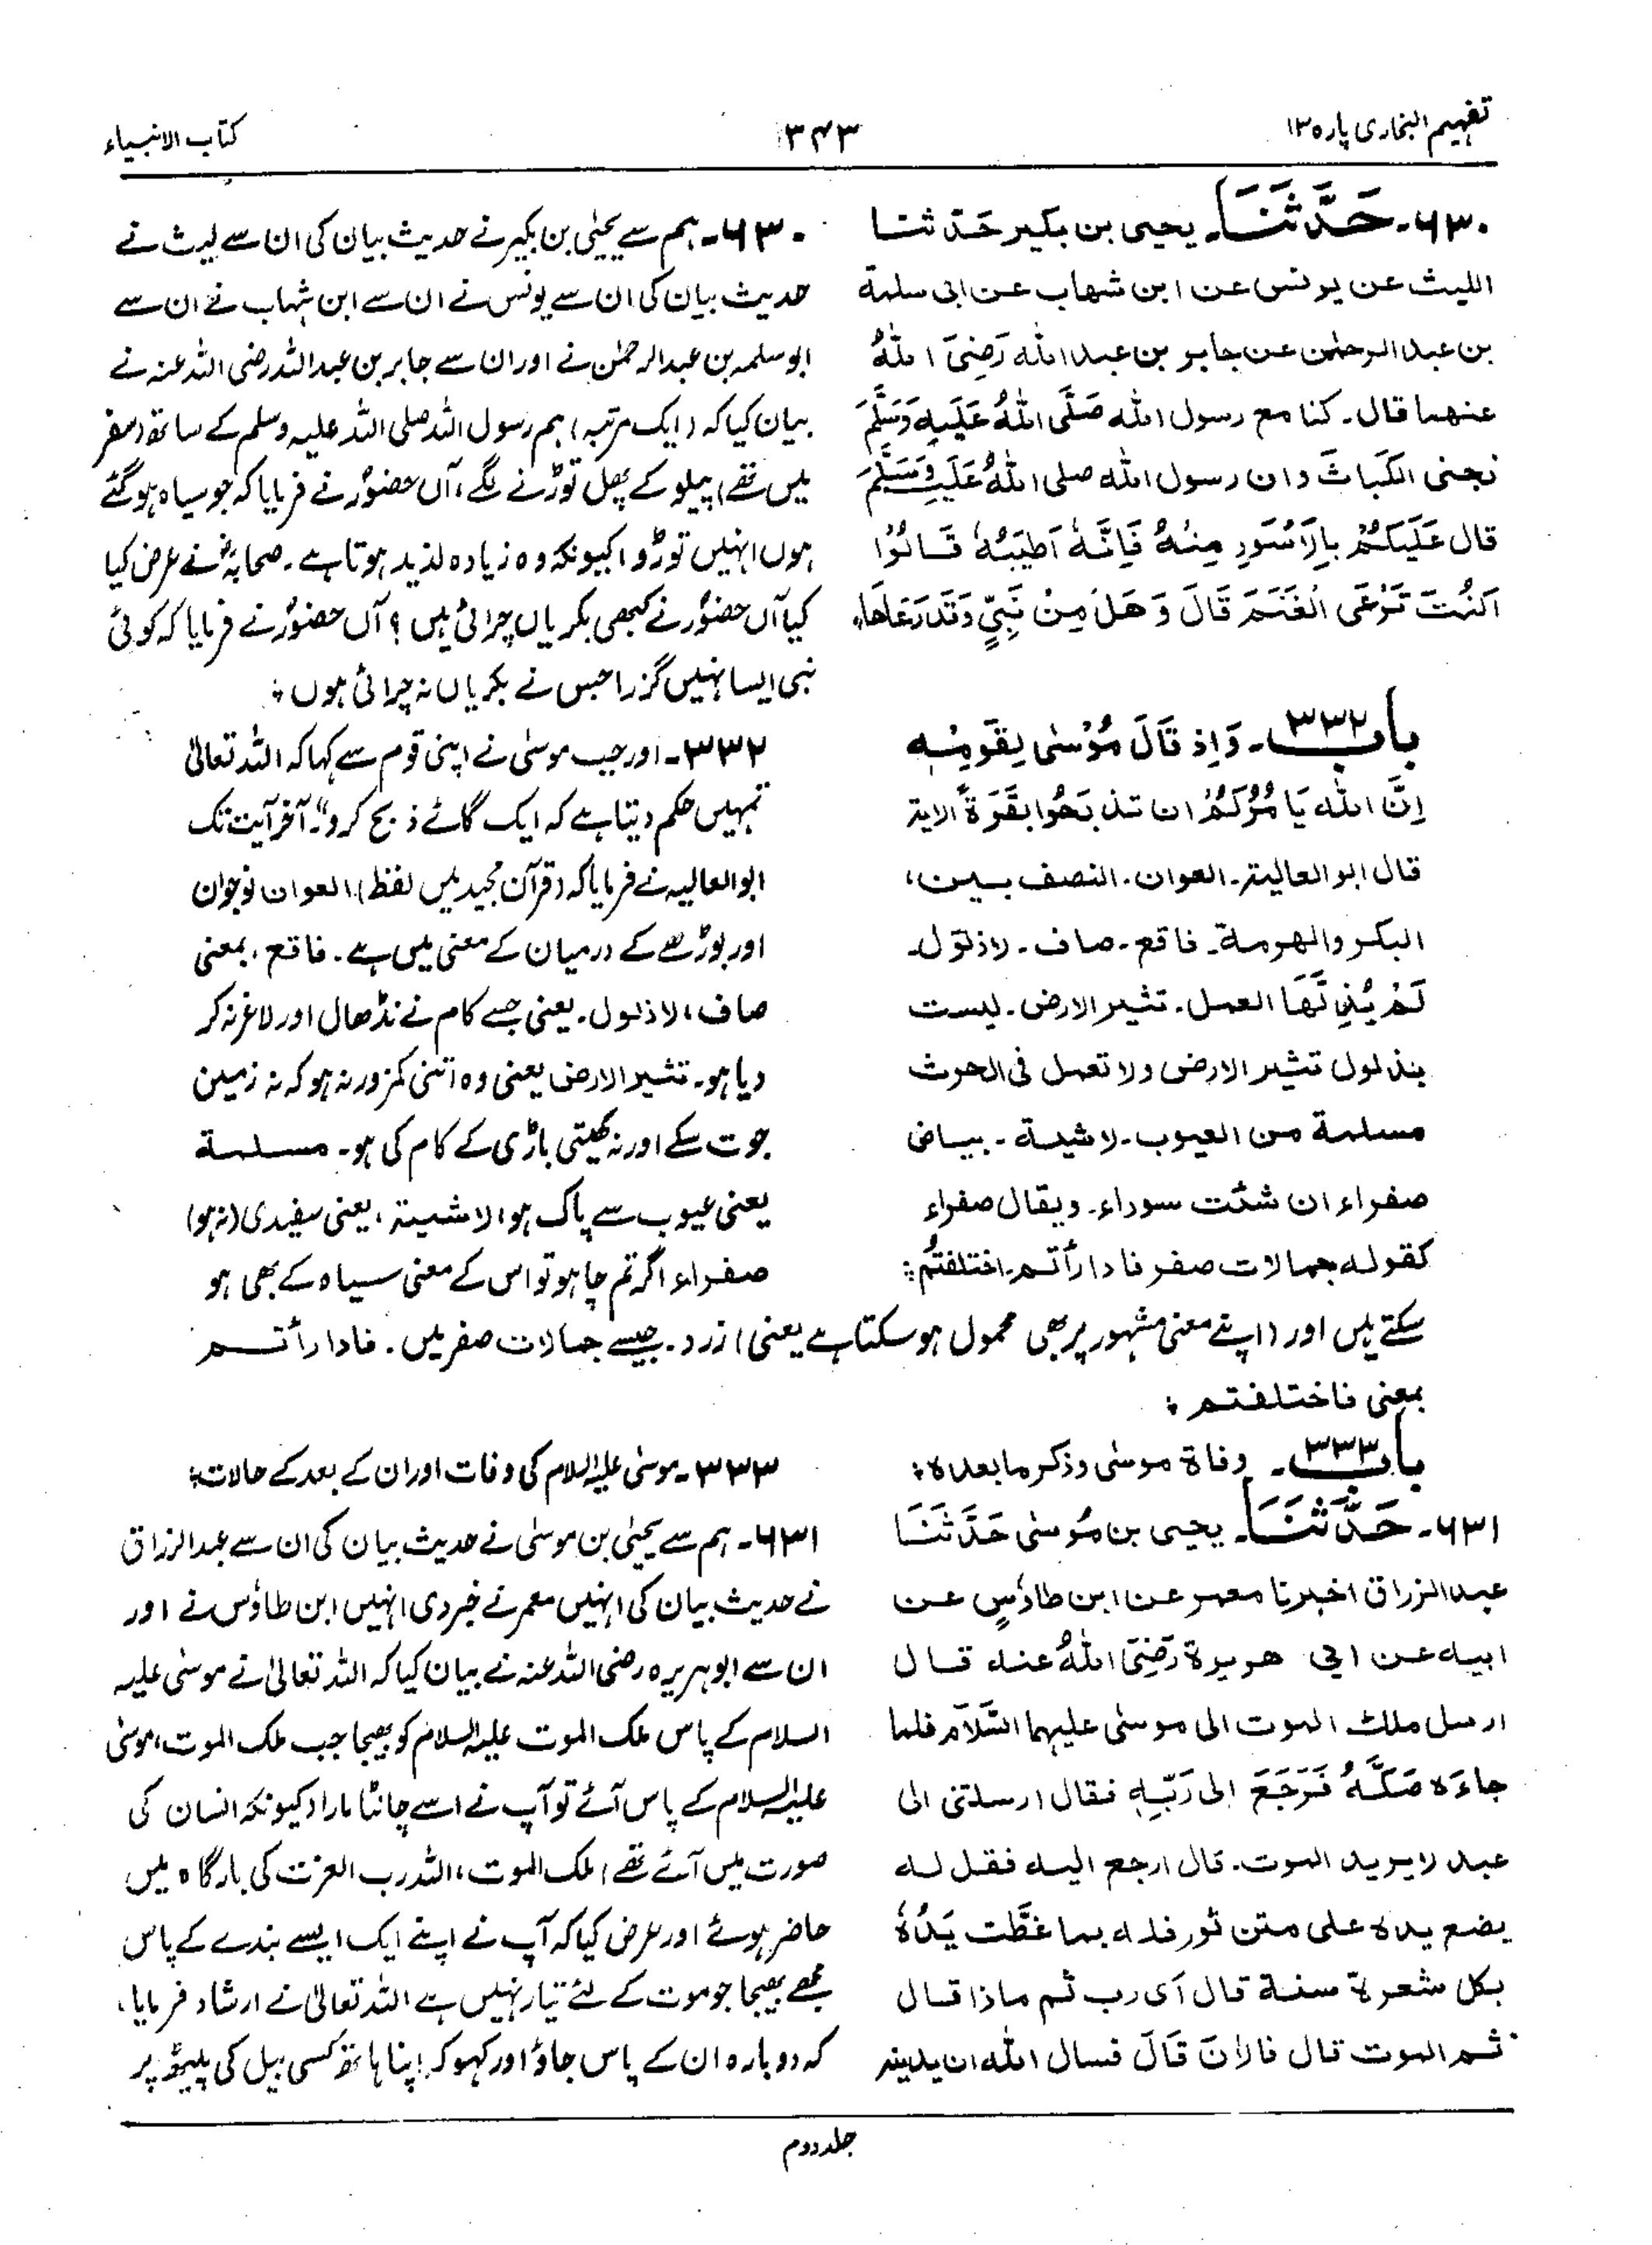 تفہیم البخاری پارہ ۱۳
۳۴۳
کتاب الانبیاء
۶۳۰۔ حَدَّثَنَا۔ یحیی بن بکیر حَدّثنا
اللیث عن یونس عن ابن شهاب عن ابی سلمة
بن عبد الرحمٰن عن جابر بن عبد الله رَضِیَ اللهُ
عنهما قال۔ کنا مع رسول الله صَلَّی اللهُ عَلَیهِ وَسَلَّمَ
نجنی الکَبَاثَ وان رسول الله صلی اللهُ عَلَیهِ وَسَلَّمَ
قال عَلَیکُمْ بِالْاَسْوَدِ مِنْهُ فَاِنَّهٗ اَطیَبُهٗ قَالُوْا
اَکُنْتَ تَرْعَی الْغَنَمَ قَالَ وَ هَلْ مِنْ نَبِیٍّ وَقَدْ رَعَاهَا،
۶۳۰۔ ہم سے یحییٰ بن بکیر نے حدیث بیان کی ان سے لیث نے
حدیث بیان کی ان سے یونس نے ان سے ابن شہاب نے ان سے
ابو سلمہ بن عبد الرحمٰن نے اور ان سے جابر بن عبد اللہ رضی اللہ عنہ نے
بیان کیا کہ (ایک مرتبہ) ہم رسول اللہ صلی اللہ علیہ وسلم کے ساتھ (سفر
میں تھے) پیلو کے پھل توڑنے لگے، آں حضوؐر نے فرمایا کہ جو سیاہ ہو گئے
ہوں انہیں توڑو کیونکہ وہ زیادہ لذیذ ہوتا ہے۔ صحابہؓ نے عرض کیا
کیا آں حضوؐر نے کبھی بکریاں چرائی ہیں؟ آں حضوؐر نے فرمایا کہ کوئی
نبی ایسا نہیں گزرا جس نے بکریاں نہ چرائی ہوں ؛
باب ۳۳۲۔ وَاِذ قَالَ مُوْسٰی لِقَوْمِهٖ
اِنَّ الله یَا مُرُکُمْ ان تذ بَحُوا بقَرَةً الایة
قال ابو العالیة۔ العوان۔ النصف بین،
البکر والهرمة۔ فاقع۔ صاف۔ لاذلول۔
لَمْ یُذِلَّهَا العمل۔ تثیر الارض۔ لیست
بذلول تثیر الارض ولا تعمل فی الحرث
مسلمة من العیوب۔ لا شیة۔ بیاض
صفراء ان شئت سوداء۔ ویقال صفراء
کقوله جمالات صفر فادارأتم۔ اختلفتُم ؛
۳۳۲۔ اور جب موسیٰ نے اپنی قوم سے کہا کہ اللہ تعالیٰ
تمہیں حکم دیتا ہے کہ ایک گائے ذبح کرو"۔ آخر آیت تک
ابو العالیہ نے فرمایا کہ (قرآن مجید میں لفظ) العوان نوجوان
اور بوڑھے کے درمیان کے معنی میں ہے۔ فاقع، بمعنی
صاف، لاذلول۔ یعنی جسے کام نے نڈھال اور لاغر نہ کر
دیا ہو۔ تثیر الارض یعنی وہ اتنی کمزور نہ ہو کہ نہ زمین
جوت سکے اور نہ کھیتی باڑی کے کام کی ہو۔ مسلمة
یعنی عیوب سے پاک ہو، لا شیة، یعنی سفیدی (نہ ہو)
صفراء اگر تم چاہو تو اس کے معنی سیاہ کے بھی ہو
سکتے ہیں اور (اپنے معنی مشہور پر بھی محمول ہو سکتا ہے یعنی) زرد۔ جیسے جمالات صفر میں۔ فادارأتم
بمعنی فاختلفتم ؛
باب ۳۳۳۔ وفاة موسٰی وذکر ما بعده ؛
۳۳۳۔ موسیٰ علیہ السلام کی وفات اور ان کے بعد کے حالات ؛
۶۳۱۔ حَدَّثَنَا۔ یحیی بن مُوسٰی حَدَّثَنَا
عبد الرزاق اخبرنا معمر عن ابن طاوٗسٍ عن
ابیه عن ابی هریرة رَضِیَ اللهُ عنه قال
ارسل ملك الموت الی موسٰی علیهما السَّلَام فلما
جاءَه صَکَّهٗ فَرَجَعَ الی رَبِّهٖ فقال ارسلتنی الی
عبد لا یرید الموت۔ قال ارجع الیه فقل له
یضع یده علی متن ثور فله بما غَطَّت یَدُهٗ
بکل شعرة سنة قال اَی رب ثم ماذا قال
ثم الموت قال فالاٰنَ قَالَ فسال الله ان یدنیه
۶۳۱۔ ہم سے یحییٰ بن موسیٰ نے حدیث بیان کی ان سے عبد الرزاق
نے حدیث بیان کی انہیں معمر نے خبر دی انہیں ابن طاؤس نے اور
ان سے ابو ہریرہ رضی اللہ عنہ نے بیان کیا کہ اللہ تعالیٰ نے موسیٰ علیہ
السلام کے پاس ملک الموت علیہ السلام کو بھیجا جب ملک الموت، موسیٰ
علیہ السلام کے پاس آئے تو آپ نے اسے چانٹا مارا (کیونکہ انسان کی
صورت میں آئے تھے) ملک الموت، اللہ رب العزت کی بارگاہ میں
حاضر ہوئے اور عرض کیا کہ آپ نے اپنے ایک ایسے بندے کے پاس
مجھے بھیجا جو موت کے لئے تیار نہیں ہے اللہ تعالیٰ نے ارشاد فرمایا،
کہ دوبارہ ان کے پاس جاؤ اور کہو کہ اپنا ہاتھ کسی بیل کی پیٹھ پر
جلد دوم